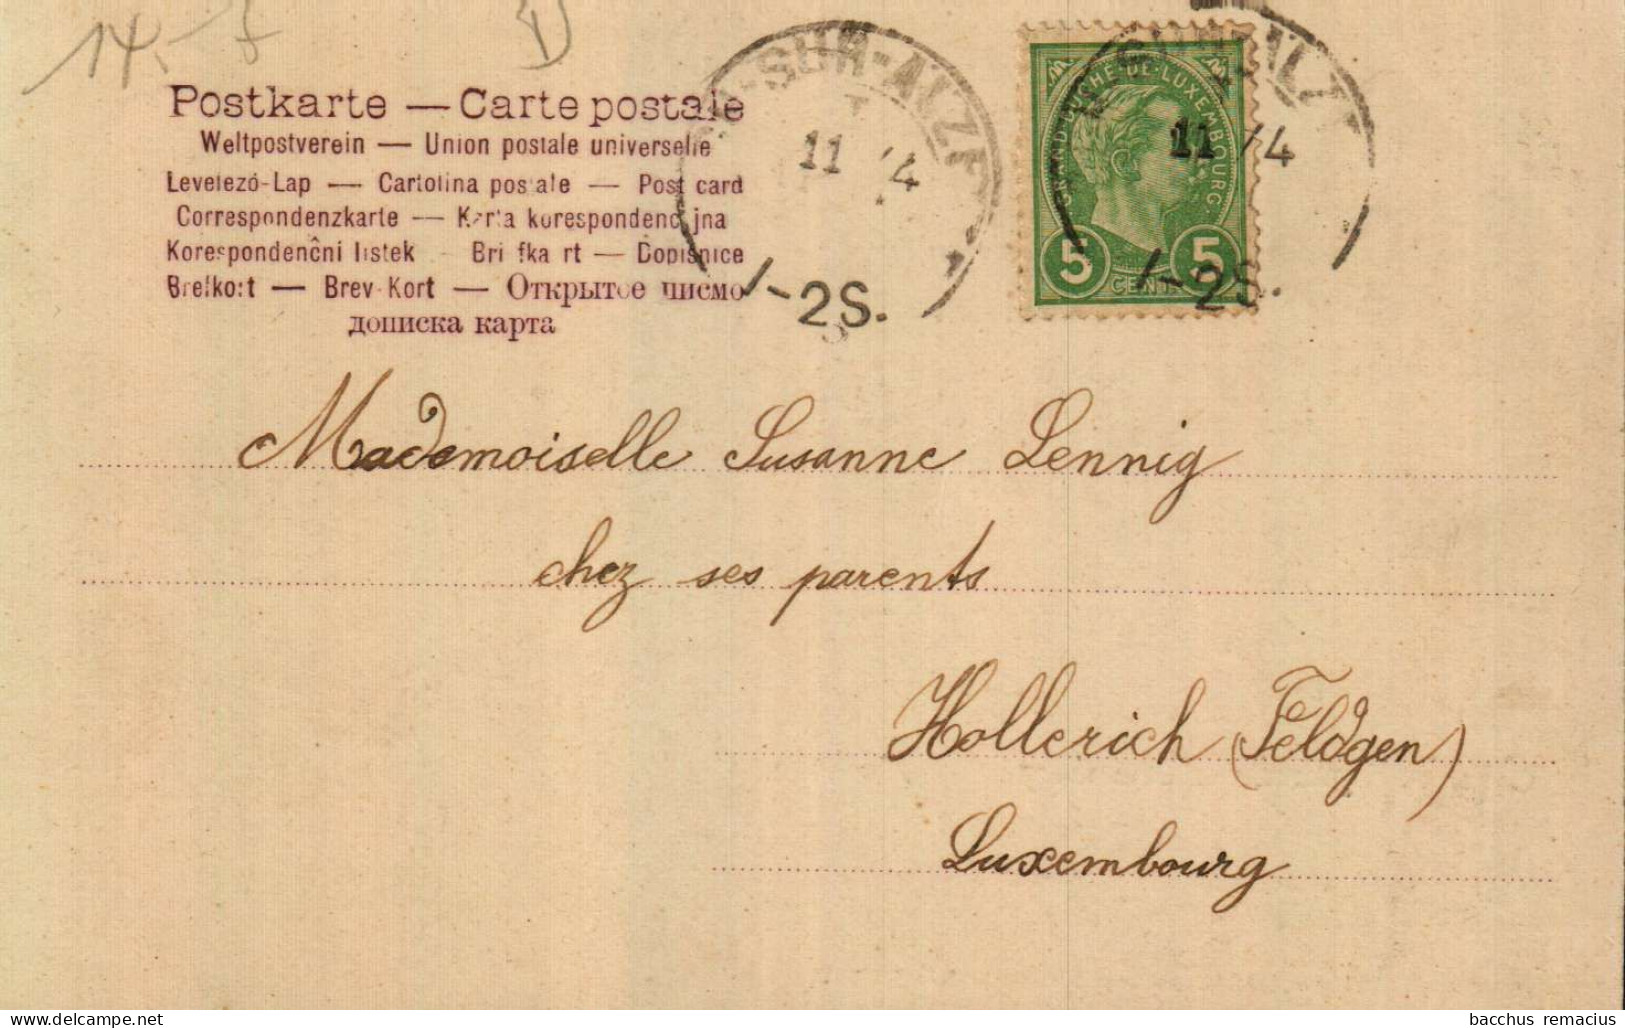 14.-7
Postkarte — Carte postale
Weltpostverein — Union postale universelle
Levelező-Lap — Cartolina postale — Post card
Correspondenzkarte — Karta korespondencyjna
Korespondenčni listek - Briefkaart — Dopisnice
Brefkort — Brev-Kort — Открытое письмо
дописка карта
SUR-ALZE
11 4
1-2S.
GRAND-DUCHÉ-DE-LUXEMBOURG.
5 5
CENT
SUR-ALZ
11 4
1-2S.
Mademoiselle Susanne Lennig
chez ses parents
Hollerich (Feldgen)
Luxembourg
bacchus remacius
delcampe.net